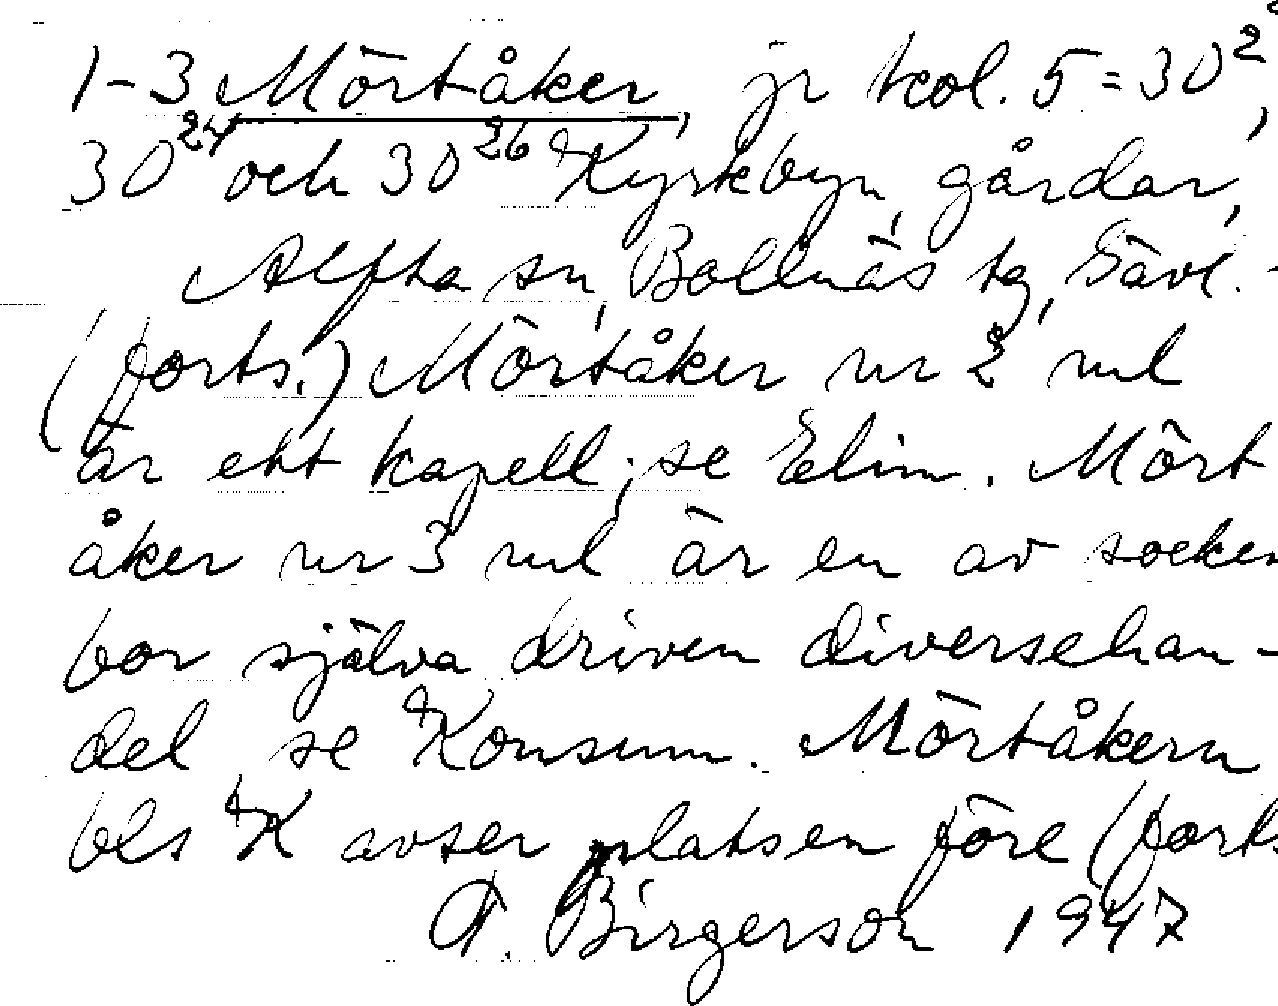 1-3 Mörtåker, jr kol. 5 = 30²,
30²⁴ och 30²⁶ Kyrkbyn, gårdar,
Alfta sn, Bollnäs tg, Gävl.-
(forts.) Mörtåker nr 2 ml
är ett kapell; se Elim. Mört
åker nr 3 ml är en av socken
bor själva driven diversehan-
del, se Konsum. Mörtåkern
bls K avser platsen före (forts
A. Birgerson 1947